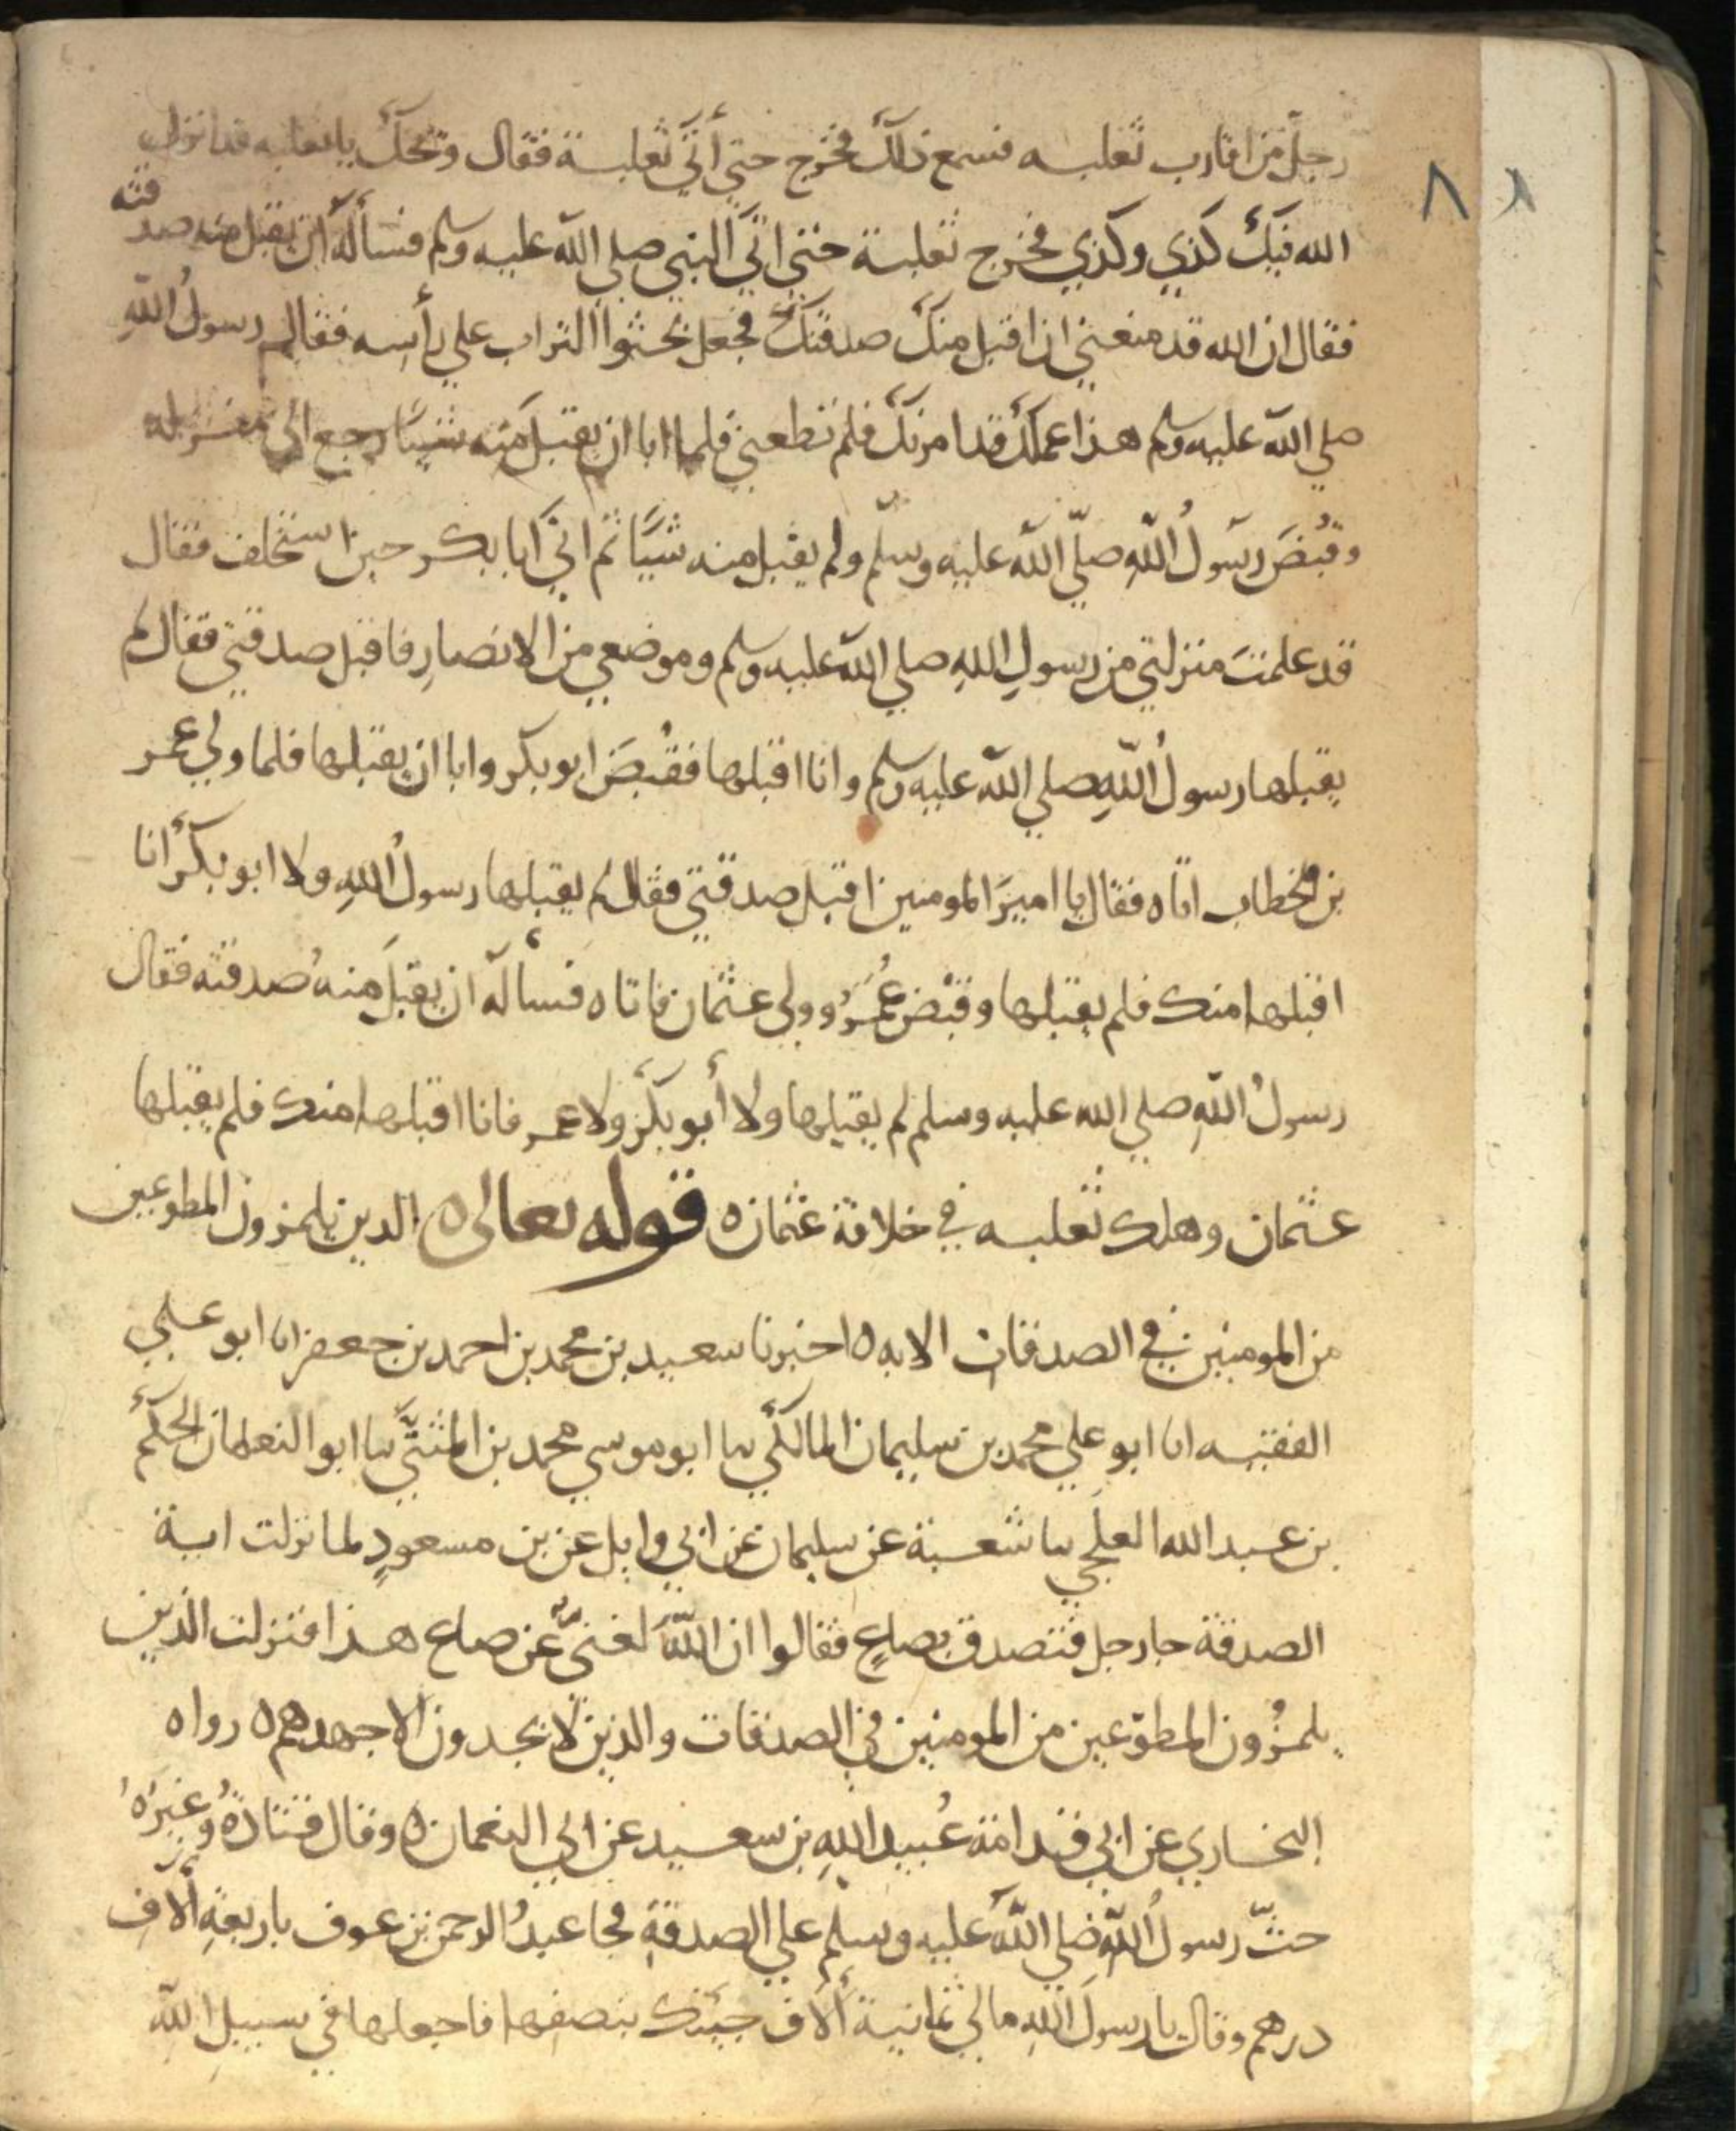 رجل من اقارب ثعلبه فسمع ذلك فخرج حتي أتي ثعلبة فقال ويحك يا ثعلبه قد انزل
الله فيك كذي وكذي فخرج ثعلبة حتي اتي النبي صلي الله عليه وسلم فسأله ان يقبل منه صدقته
فقال ان الله قد منعني ان اقبل منك صدقتك فجعل يحثوا التراب علي رأسه فقال له رسولُ اللهِ
صلي الله عليه وسلم هذا عملك قد امرتك فلم تطعني فلما ابا ان يقبل منه شيئا رجع الي منزله
وقُبضَ رسولُ اللهِ صلّي الله عليه وسلّم ولم يقبل منه شيئًا ثم اتي ابا بكر حين استخلف فقال
قد علمتَ منزلتي من رسولِ اللهِ صلي الله عليه وسلم وموضعي من الانصارِ فاقبل صدقتي فقال لم
يقبلها رسولُ اللهِ صلي الله عليه وسلم وانا اقبلها فقُبضَ ابو بكر وابا ان يقبلها فلما ولي عمر
بن الخطاب اتاه فقال يا اميرَ المومنين اقبل صدقتي فقال لم يقبلها رسولُ اللهِ ولا ابو بكر أنا
اقبلها منك فلم يقبلها وقبض عُمرُ وولي عثمان فاتاه فسأله ان يقبلَ منه صدقته فقال
رسولُ اللهِ صلي الله عليه وسلم لم يقبلها ولا أبو بكر ولا عمر فانا اقبلها منك فلم يقبلها
عثمان وهلك ثعلبه في خلافة عثمان ه قوله تعالى ه الذين يلمزون المطوعين
من المومنين في الصدقات الايه ه اخبرنا سعيد بن محمد بن احمد بن جعفر انا ابو علي
الفقيه انا ابو علي محمد بن سليمان المالكي نا ابو موسي محمد بن المثنَّي نا ابو النعمان الحكم
بن عبد الله العجلي نا شعبة عن سليمان عن ابي وايل عن بن مسعودٍ لما نزلت اية
الصدقة جا رجل فتصدق بصاعٍ فقالوا ان اللهَ لغنيٌّ عن صاع هذا فنزلت الذين
يلمزُون المطوّعين من المومنين في الصدقات والذين لا يجدون الا جهدهم ه رواه
البخاري عن ابي قدامة عُبيد اللهِ بن سعيد عن ابي النعمان ه وقال قتادةُ وغيرُهُ
حثّ رسولُ اللهِ صلي الله عليه وسلم علي الصدقةِ فجا عبدُ الرحمن بن عوف باربعةِ ألاف
درهم وقال يا رسولَ اللهِ مالي ثمانية ألاف جيتك بنصفها فاجعلها في سبيلِ اللهِ